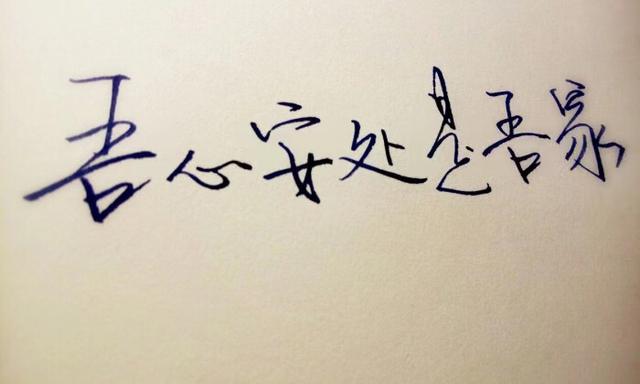 吾心安处是吾家